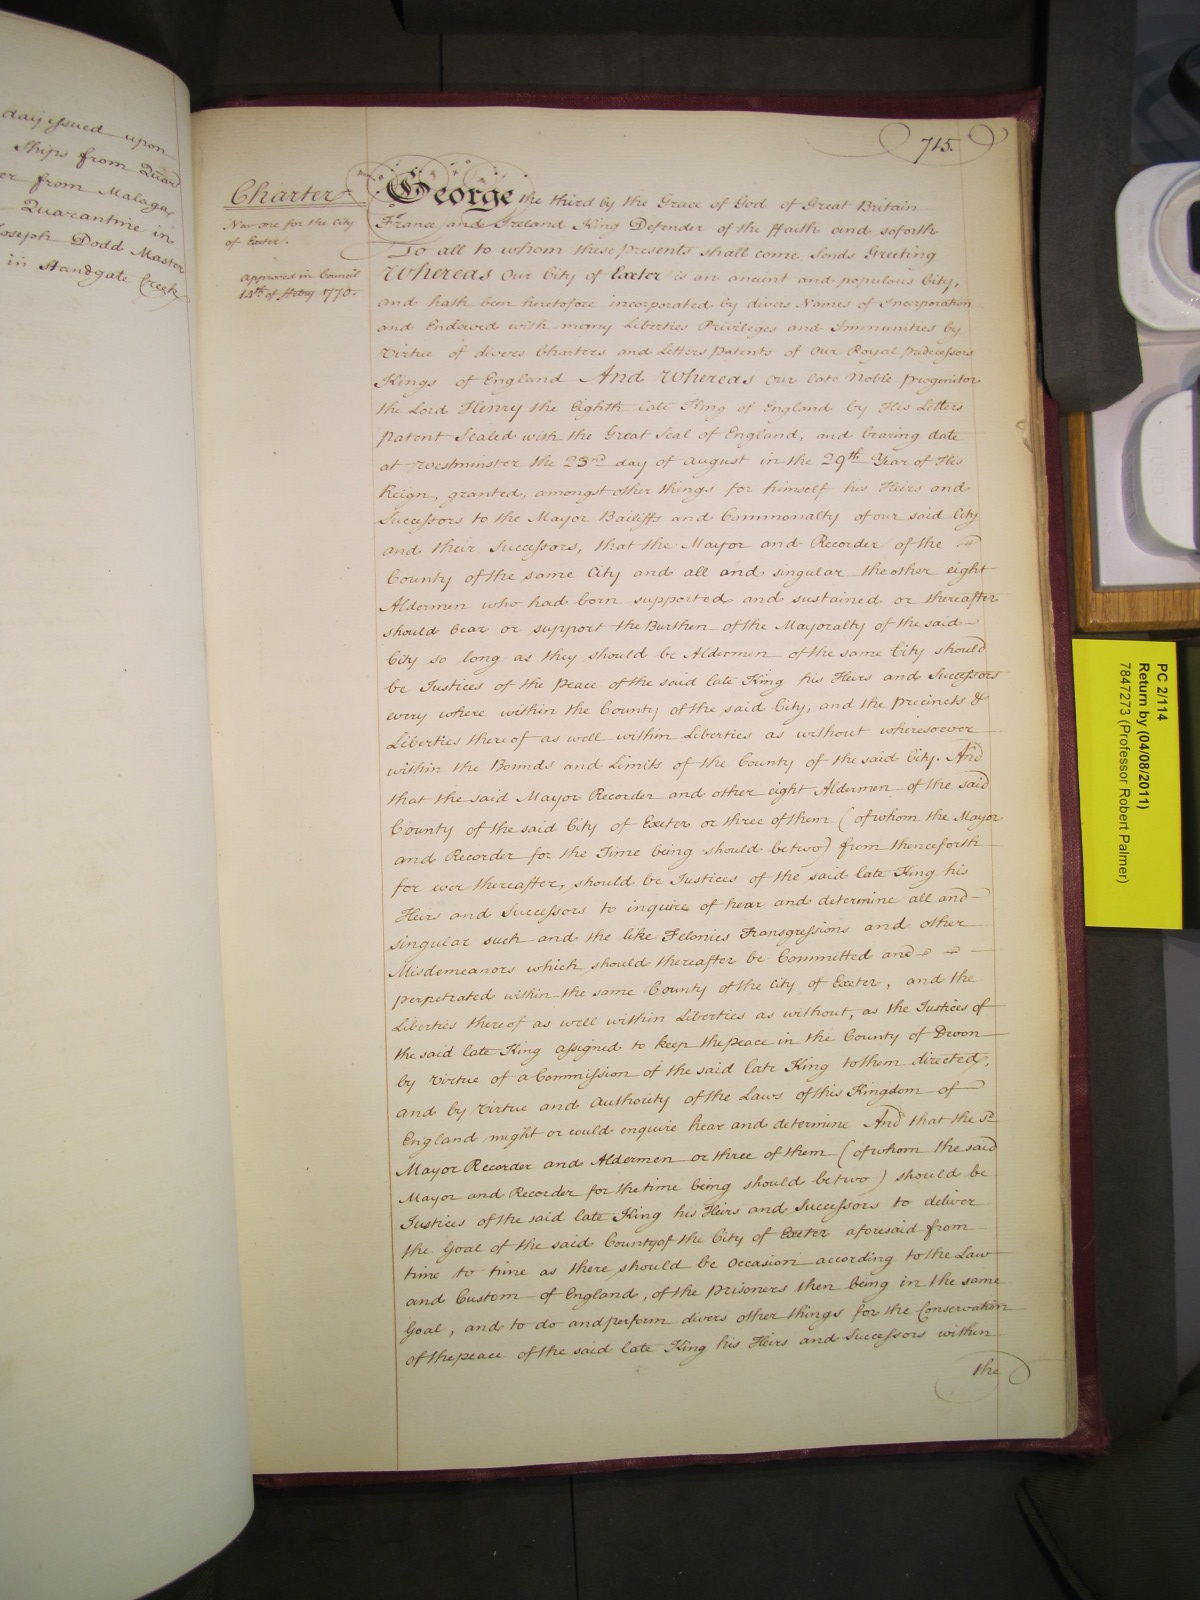 day issued upon
Ships from Quar
er from Malaga,
Quarantine in
Joseph Dodd Master
in Standgate Creek
715.
Charter
New one for the City
of Exeter.
approved in Council
14th of Febry 1770.
George the third by the Grace of God of Great Britain
France and Ireland King Defender of the ffaith and soforth
To all to whom these presents shall come, Sends Greeting
Whereas Our City of Exeter is an ancient and populous City,
and hath been heretofore incorporated by divers Names of Incorporation
and Endowed with many Liberties Privileges and Immunities by
Virtue of divers Charters and Letters Patents of Our Royal predecessors
Kings of England And Whereas our late Noble progenitor
the Lord Henry the Eighth late King of England by His Letters
patent Sealed with the Great Seal of England, and bearing date
at Westminster the 23rd day of August in the 29th Year of His
Reign, granted, amongst other things for himself his Heirs and
Successors to the Mayor Bailiffs and Commonalty of our said City
and their Successors, that the Mayor and Recorder of the
County of the same City and all and singular the other eight
Aldermen who had born supported and sustained or thereafter
should bear or support the Burthen of the Mayoralty of the said
City so long as they should be Aldermen of the same City should
be Justices of the Peace of the said late King his Heirs and Successors
every where within the County of the said City, and the Precincts &
Liberties thereof as well within Liberties as without wheresoever
within the Bounds and Limits of the County of the said City. And
that the said Mayor Recorder and other eight Aldermen of the said
County of the said City of Exeter or three of them (of whom the Mayor
and Recorder for the Time being should be two) from thenceforth
for ever thereafter, should be Justices of the said late King his
Heirs and Successors to inquire of hear and determine all and
singular such and the like Felonies Transgressions and other
Misdemeanors which should thereafter be Committed and
perpetrated within the same County of the City of Exeter, and the
Liberties thereof as well within Liberties as without, as the Justices of
the said late King assigned to keep the peace in the County of Devon
by Virtue of a Commission of the said late King to them directed,
and by Virtue and Authority of the Laws of this Kingdom of
England might or could enquire hear and determine And that the sd.
Mayor Recorder and Aldermen or three of them (of whom the said
Mayor and Recorder for the time being should be two) should be
Justices of the said late King his Heirs and Successors to deliver
the Goal of the said County of the City of Exeter aforesaid from
time to time as there should be Occasion according to the Law
and Custom of England, of the Prisoners then being in the same
Goal, and to do and perform divers other things for the Conservation
of the peace of the said late King his Heirs and Successors within
the
PC 2/114
Return by (04/08/2011)
7847273 (Professor Robert Palmer)